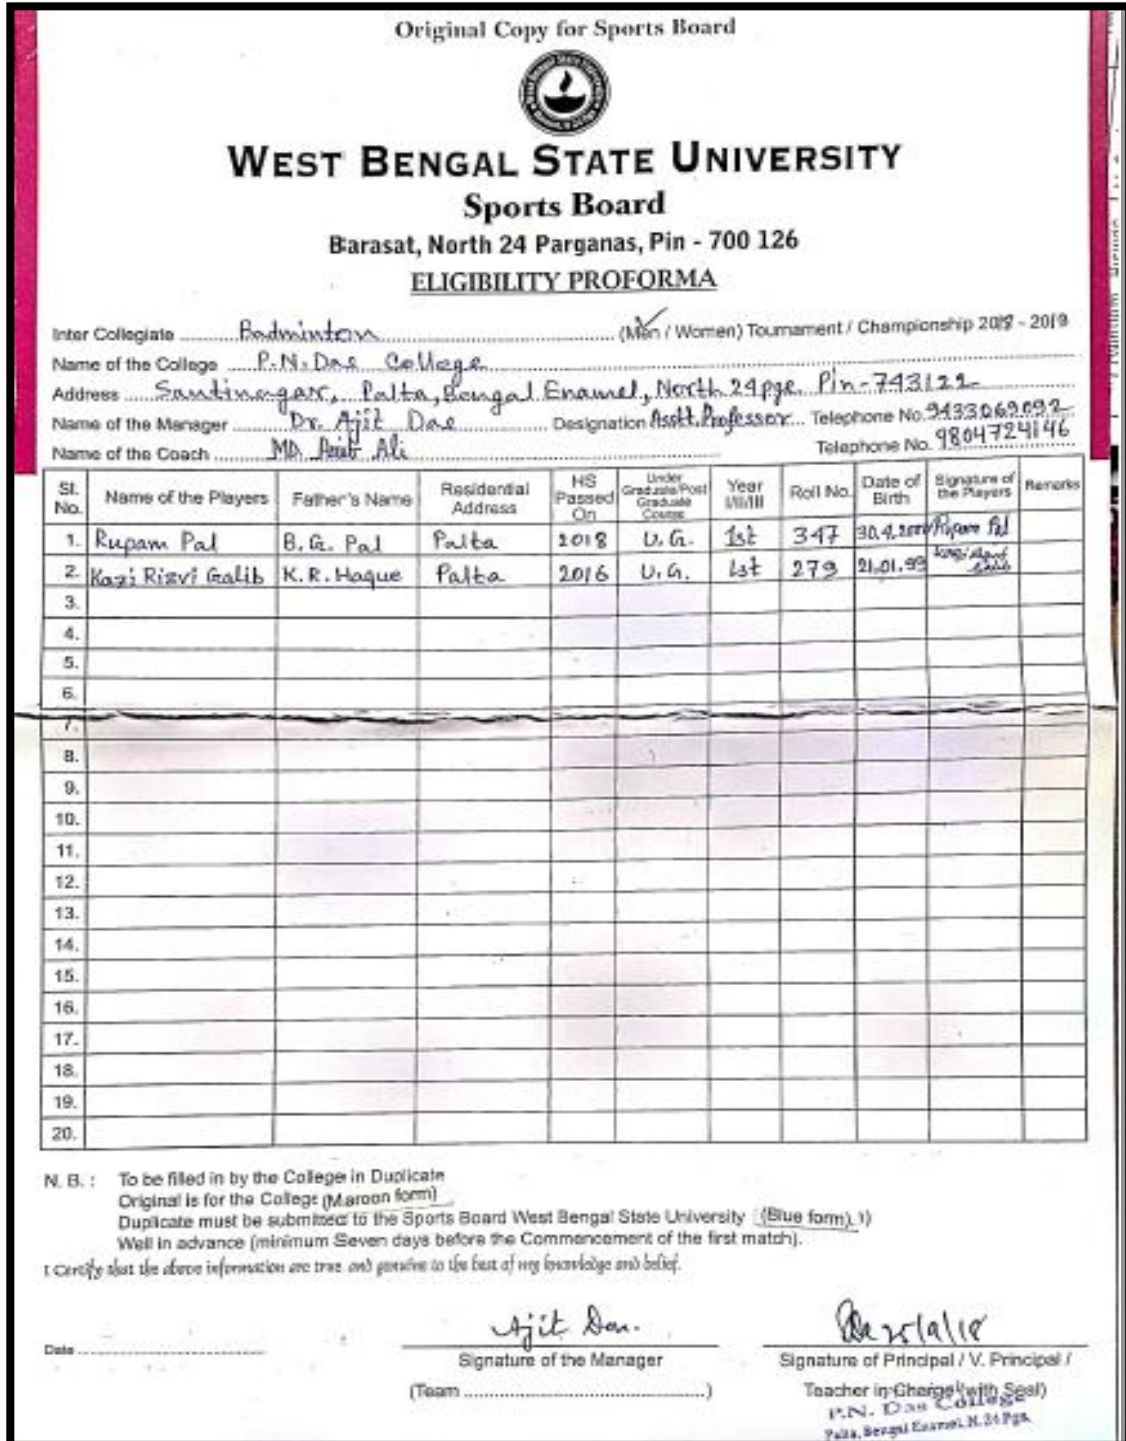 Original Copy for Sports Board
WEST BENGAL STATE UNIVERSITY
Sports Board
Barasat, North 24 Parganas, Pin - 700 126
ELIGIBILITY PROFORMA
Inter Collegiate Badminton (Men / Women) Tournament / Championship 2018 - 2019
Name of the College P.N. Das College
Address Santinagar, Palta, Bengal Enamel, North 24 pgs. Pin-743122
Name of the Manager Dr. Ajit Das Designation Asstt. Professor Telephone No. 9433069092
Name of the Coach MD. Ali Telephone No. 9804724146
Sl. No. Name of the Players Father's Name Residential Address HS Passed On Under Graduate/Post Graduate Course Year I/II/III Roll No. Date of Birth Signature of the Players Remarks
1. Rupam Pal B. G. Pal Palta 2018 U.G. 1st 347 30.4.2000 Rupam Pal
2. Kazi Rizvi Galib K. R. Haque Palta 2016 U.G. 1st 279 21.01.99
3.
4.
5.
6.
7.
8.
9.
10.
11.
12.
13.
14.
15.
16.
17.
18.
19.
20.
N. B. : To be filled in by the College in Duplicate
Original is for the College (Maroon form)
Duplicate must be submitted to the Sports Board West Bengal State University (Blue form), 1)
Well in advance (minimum Seven days before the Commencement of the first match).
I Certify that the above information are true and genuine to the best of my knowledge and belief.
Ajit Das. 25/9/18
Date Signature of the Manager Signature of Principal / V. Principal /
(Team ) Teacher in Charge (with Seal)
P.N. Das College
Palta, Bengal Enamel, N. 24 Pgs.